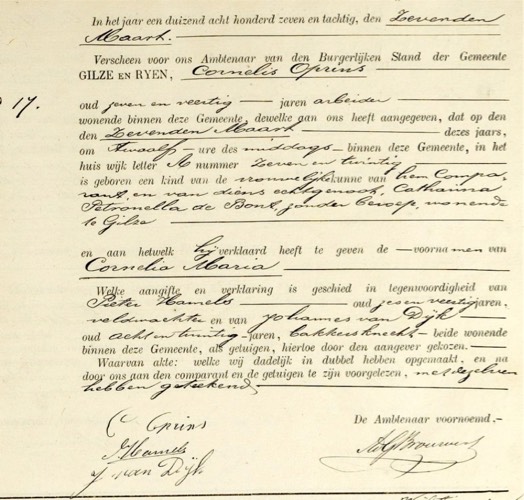 In het jaar een duizend acht honderd zeven en tachtig, den Zevenden
Maart.
Verscheen voor ons Ambtenaar van den Burgerlijken Stand der Gemeente
GILZE EN RYEN, Cornelis Oprins
17.
oud zeven en veertig jaren arbeider
wonende binnen deze Gemeente, dewelke aan ons heeft aangegeven, dat op den
den Zevenden Maart dezes jaars,
om twaalf ure des middags binnen deze Gemeente, in het
huis wijk letter A nummer Zeven en twintig
is geboren een kind van de vrouwelijke kunne van hem Compa-
rant, en van diens echtgenoot, Catharina
Petronella de Bont, zonder beroep, wonende
te Gilze
en aan hetwelk hij verklaard heeft te geven de voornamen van
Cornelia Maria
Welke aangifte en verklaring is geschied in tegenwoordigheid van
Pieter Hamels oud zes en veertig jaren,
veldwachter en van Johannes van Dijk
oud acht en twintig jaren, bakkersknecht beide wonende
binnen deze Gemeente, als getuigen, hiertoe door den aangever gekozen.
Waarvan akte: welke wij dadelijk in dubbel hebben opgemaakt, en na
door ons aan den comparant en de getuigen te zijn voorgelezen, met dezelven
hebben geteekend
De Ambtenaar voornoemd.-
C Oprins
Hamels
J van Dijk